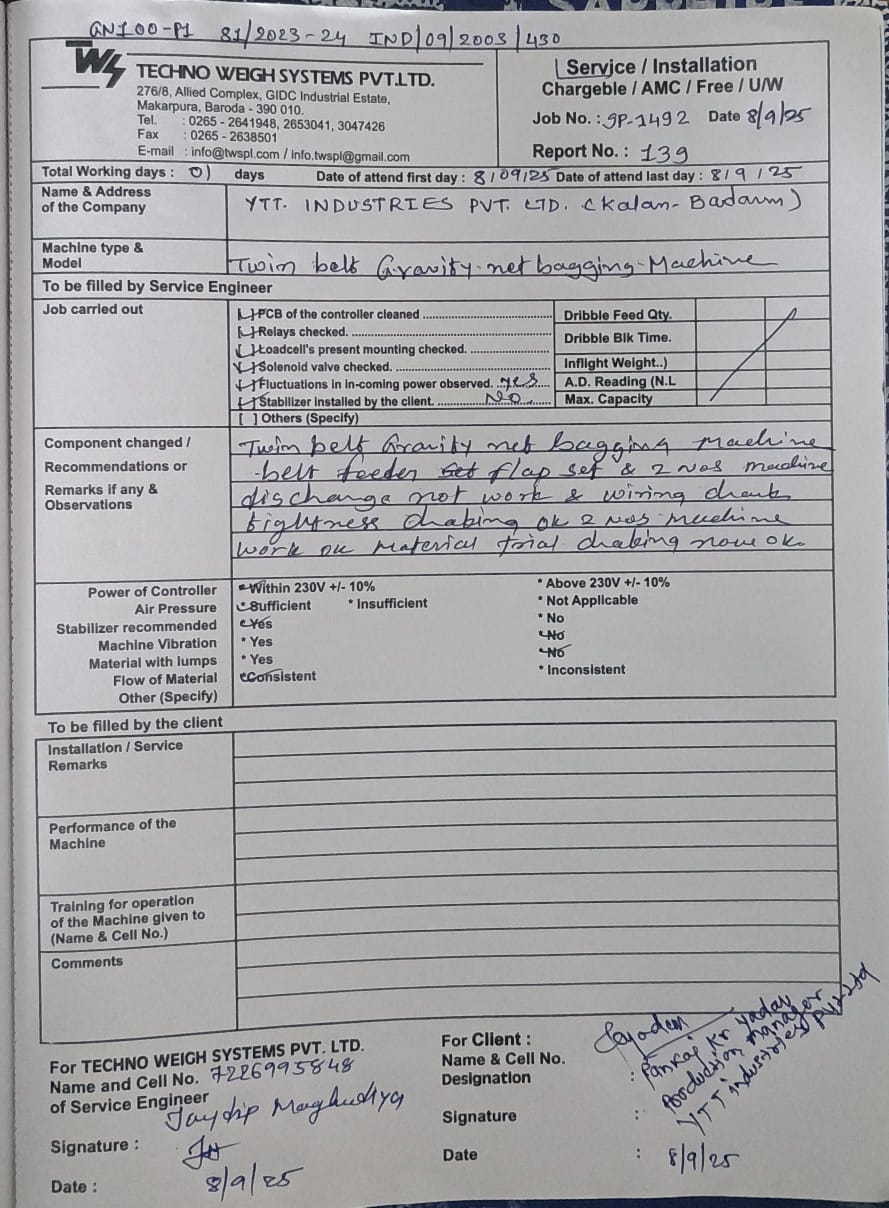 GN100-P1 81/2023-24 IND/09/2003/430
TWS TECHNO WEIGH SYSTEMS PVT.LTD.
276/8, Allied Complex, GIDC Industrial Estate,
Makarpura, Baroda - 390 010.
Tel. : 0265 - 2641948, 2653041, 3047426
Fax : 0265 - 2638501
E-mail : info@twspl.com / info.twspl@gmail.com
Service / Installation
Chargeble / AMC / Free / U/W
Job No. : gp-1492 Date 8/9/25
Report No. : 139
Total Working days : 01 days Date of attend first day : 8/09/25 Date of attend last day : 8/9/25
Name & Address of the Company
YTT. INDUSTRIES PVT. LTD. (Kalan-
Machine type & Model
Twin belt Gravity net bagging Machine
To be filled by Service Engineer
Job carried out
PCB of the controller cleaned
Relays checked.
Loadcell's present mounting checked.
Solenoid valve checked.
Fluctuations in in-coming power observed. yes
Stabilizer installed by the client. No
[ ] Others (Specify)
Dribble Feed Qty.
Dribble Blk Time.
Inflight Weight..)
A.D. Reading (N.L
Max. Capacity
Component changed /
Recommendations or
Remarks if any &
Observations
Twin belt Gravity net bagging machine
belt feeder set flap set & 2 nos machine
dischange not work & wiring chack
tightness chaking ok 2 nos machine
work ok material trial chaking now ok.
Power of Controller * Within 230V +/- 10% * Above 230V +/- 10%
Air Pressure * Sufficient * Insufficient * Not Applicable
Stabilizer recommended * Yes * No
Machine Vibration * Yes * No
Material with lumps * Yes * No
Flow of Material * Consistent * Inconsistent
Other (Specify)
To be filled by the client
Installation / Service
Remarks
Performance of the
Machine
Training for operation
of the Machine given to
(Name & Cell No.)
Comments
For TECHNO WEIGH SYSTEMS PVT. LTD.
Name and Cell No. 7226995848
of Service Engineer
Jaydip Maghudiya
Signature :
Date : 8/9/25
For Client :
Name & Cell No. :
Designation
Pankaj Kr Yadav
Production manager
YTT industries Pvt Ltd
Signature :
Date : 8/9/25